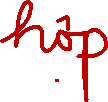 hộp